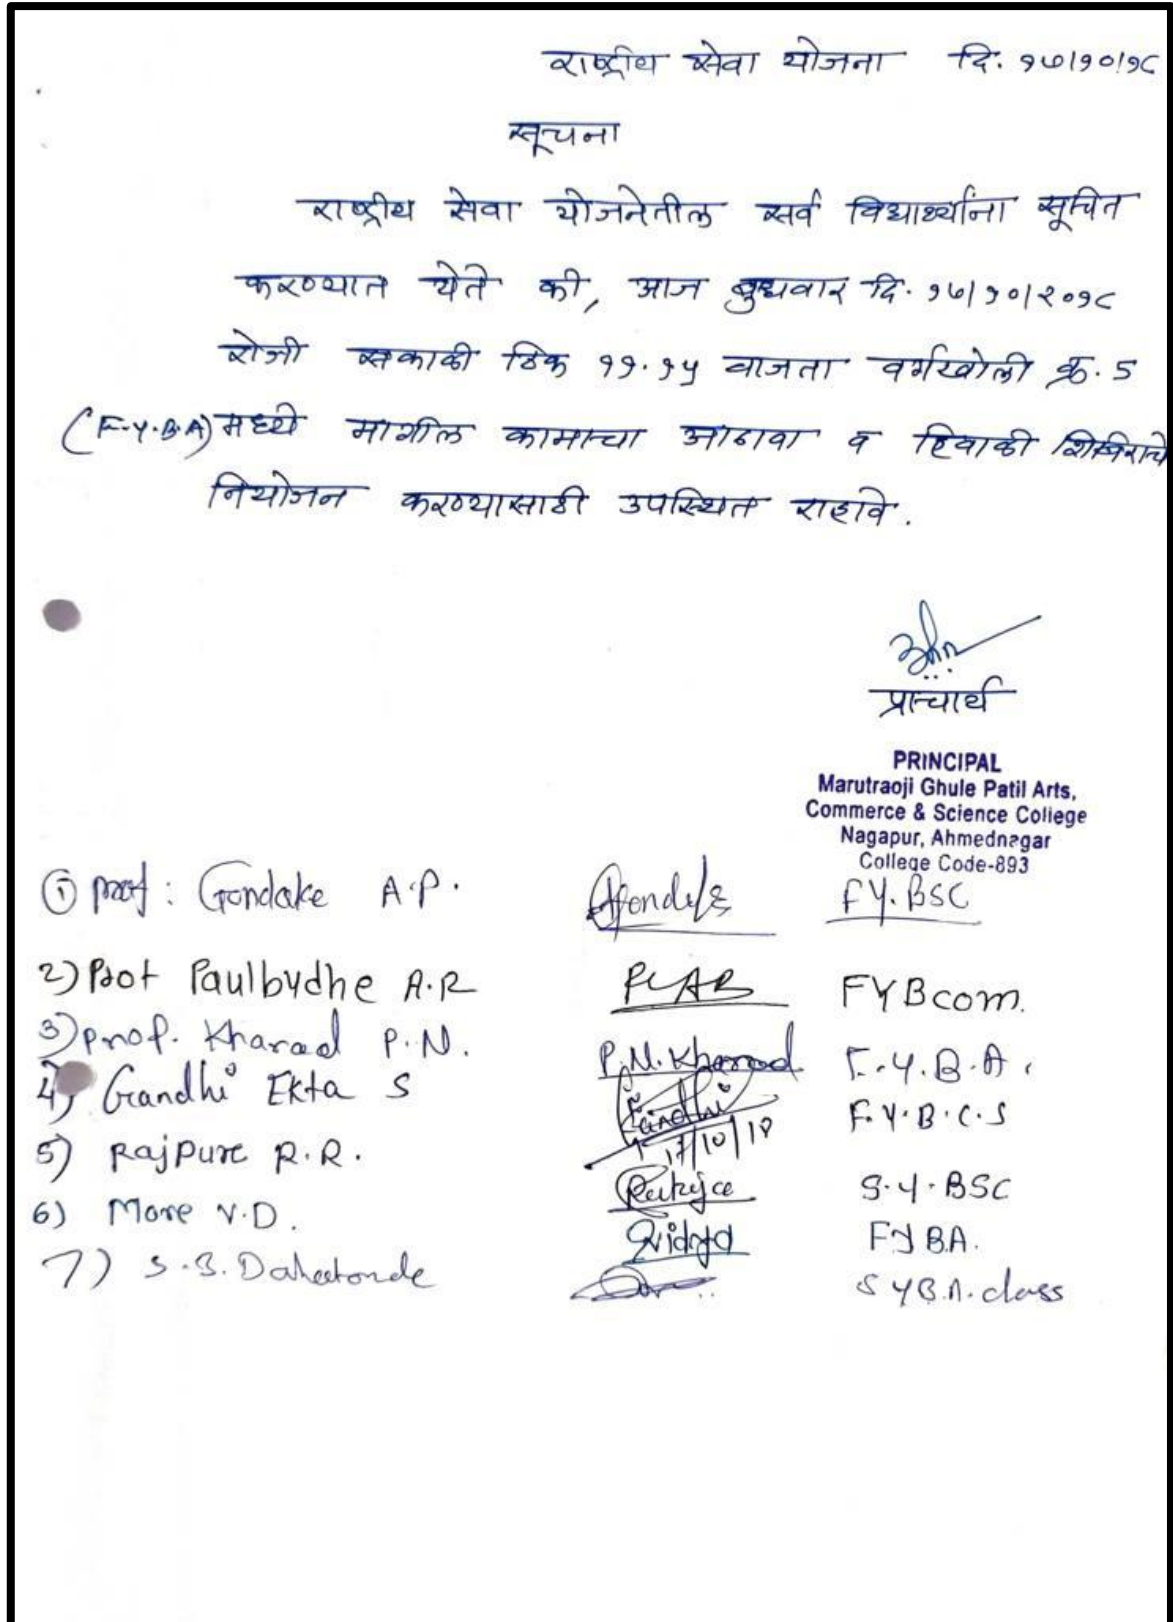 राष्ट्रीय सेवा योजना दि. १७/१०/१८
सूचना
राष्ट्रीय सेवा योजनेतील सर्व विद्यार्थ्यांना सूचित
करण्यात येते की, आज बुधवार दि. १७/१०/२०१८
रोजी सकाळी ठिक ११.१५ वाजता वर्गखोली क्र. 5
(F.Y.B.A) मध्ये मागील कामाचा आढावा व हिवाळी शिबिराचे
नियोजन करण्यासाठी उपस्थित राहावे.
प्राचार्य
PRINCIPAL
Marutraoji Ghule Patil Arts,
Commerce & Science College
Nagapur, Ahmednagar
College Code-893
① prof: Gondake A.P. FY.BSC
2) Prof Paulbudhe A.R FYBcom.
3) Prof. Kharad P.N. P.N. Kharad F.Y.B.A.
4) Gandhi Ekta S Gandhi 17/10/18 F.Y.B.C.S
5) Rajpure R.R. S.Y.BSC
6) More V.D. Vidya FYBA.
7) S.S. SYBA. class